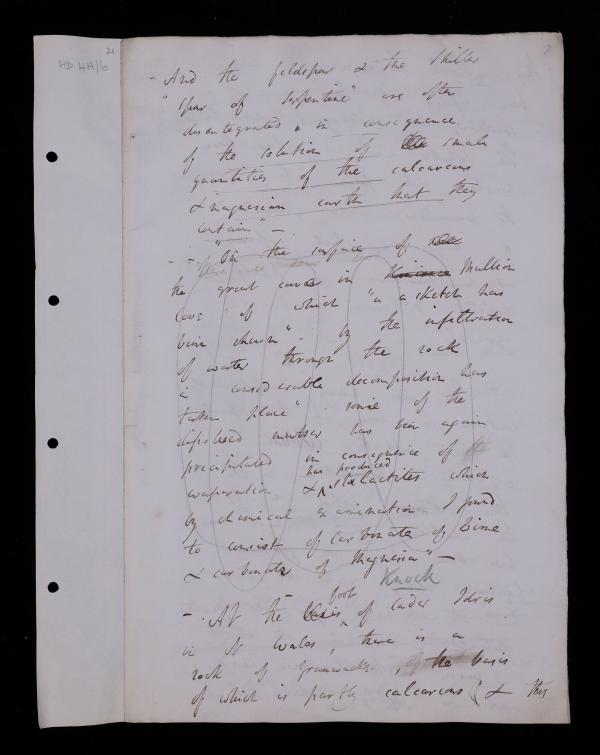 21
HD 4A/6
7
- And the feldspar & the Shiller
"spar of serpentine" are often
disentegrated, in consequence
of the solution of small
quantities of the calcareous
& magnesian earth that they
contain" -
- - "On the surface of
the great caves in Mullion
Cove" of which "a sketch has
been shewn" - by the infiltration
of water through the rock
a considerable decomposition has
taken place" some of the
dissolved matter has been again
precipitated in consequence of the
has produced
evaporation & stalactites which
by chemical examination I found
to consist of carbonate of Lime
& carbonate of Magnesia" -
Knock
foot
- . At the of Cader Idris
in N Wales, there is a
rock of Grauwacke, of the basis
of which is partly calcareous (& this